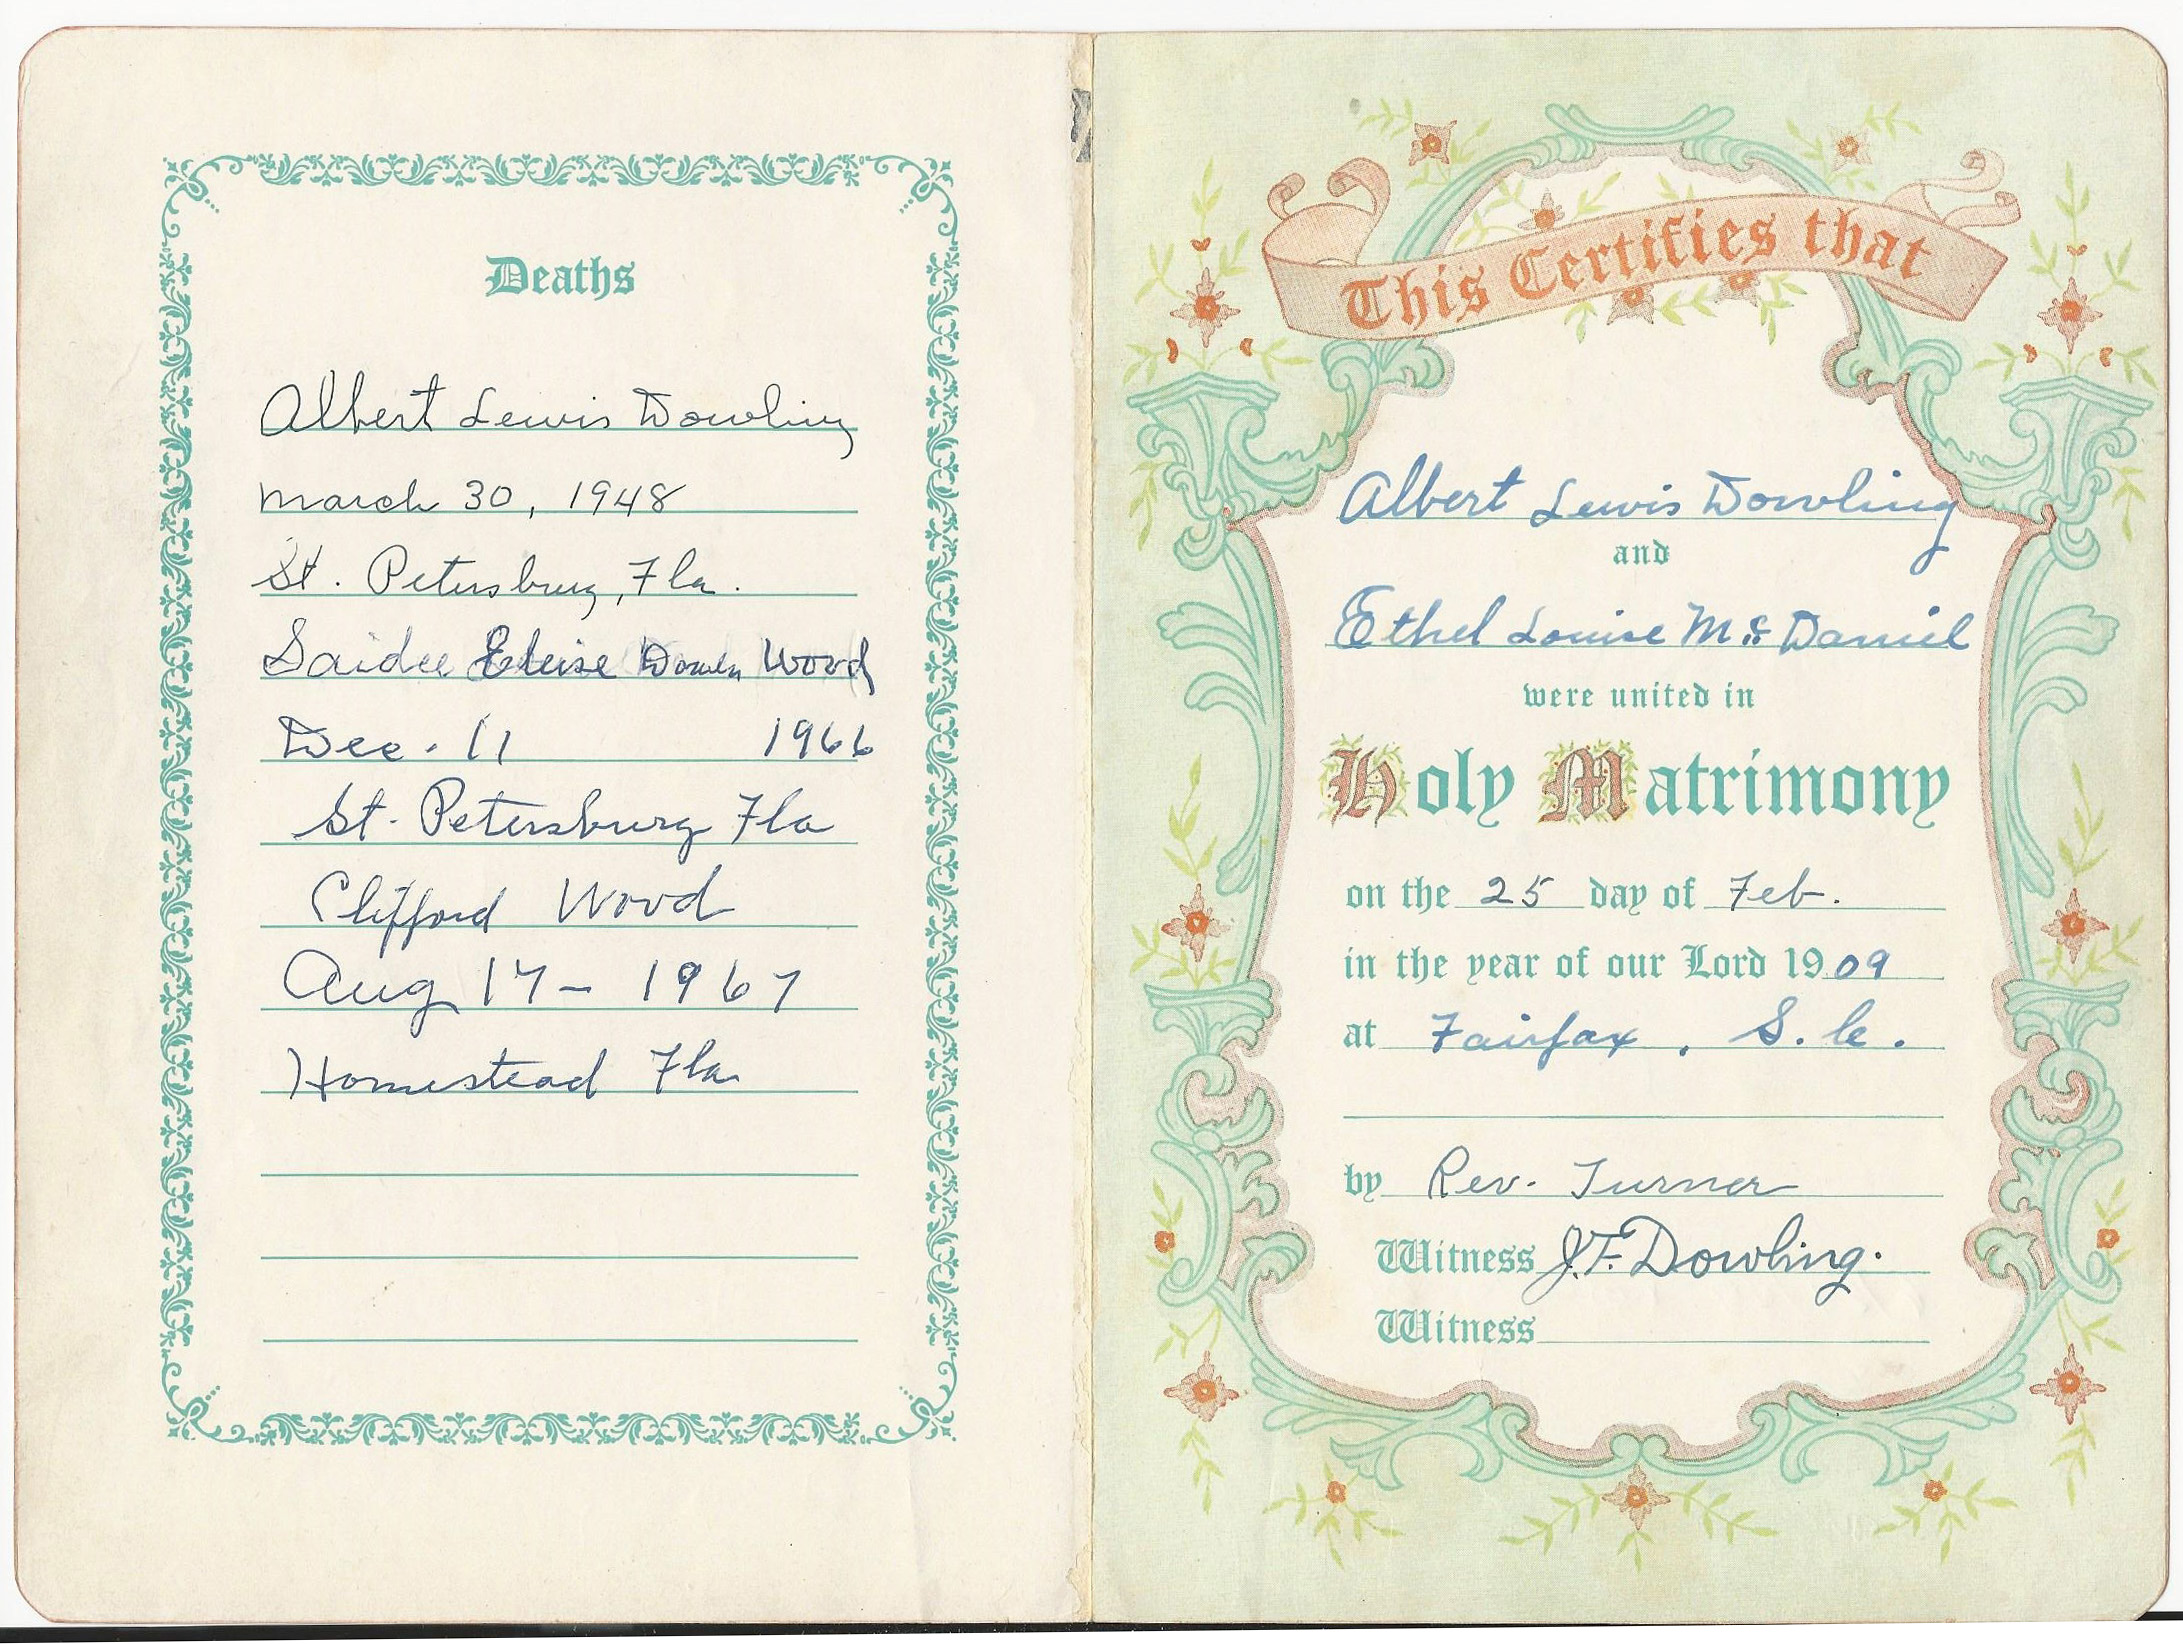 Deaths
Albert Lewis Dowling
March 30, 1948
St. Petersburg, Fla.
Saidee Eloise Wood
Dec. 11 1966
St. Petersburg Fla
Clifford Wood
Aug 17 - 1967
Homestead Fla
This Certifies that
Albert Lewis Dowling
and
Ethel Louise Mc Daniel
were united in
Holy Matrimony
on the 25 day of Feb.
in the year of our Lord 1909
at Fairfax, S. C.
by Rev. Turner
Witness J.F. Dowling.
Witness